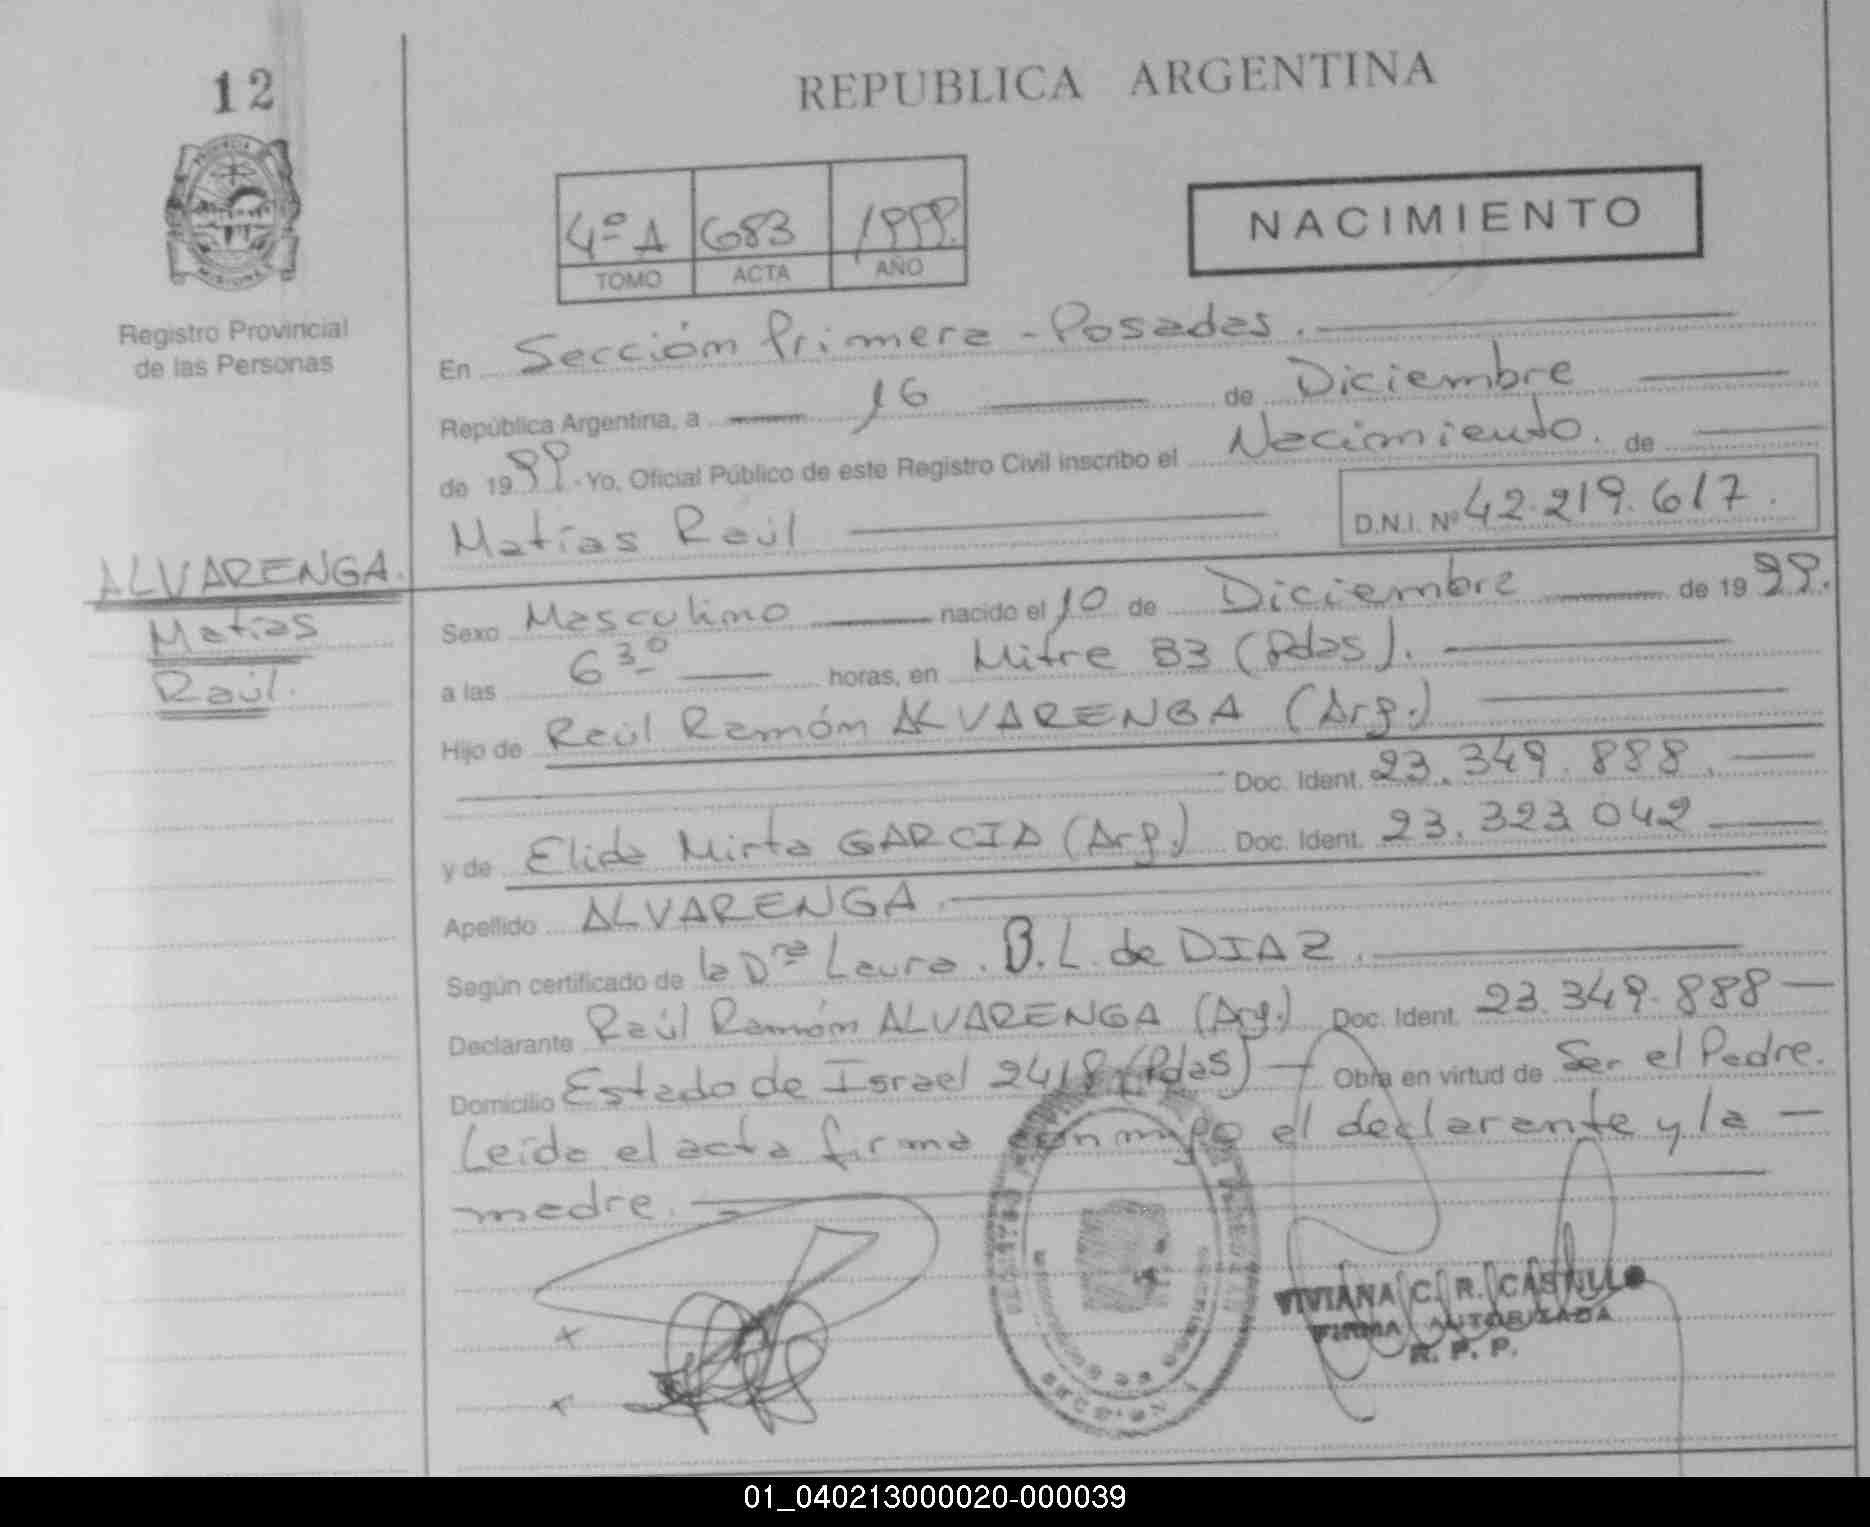 12
REPUBLICA ARGENTINA
Registro Provincial
de las Personas
4º A 683 1999.
TOMO ACTA AÑO
NACIMIENTO
En Sección Primera - Posadas.
República Argentina, a 16 de Diciembre
de 1999 - Yo, Oficial Público de este Registro Civil inscribo el Nacimiento. de
Matías Raúl D.N.I. Nº 42.219.617.
ALVARENGA.
Matías
Raúl.
Sexo Masculino nacido el 10 de Diciembre de 1999.
a las 6 30 horas, en Mitre 83 (Pdas).
Hijo de Raúl Ramón ALVARENGA (Arg.)
Doc. Ident. 23.349.888.
y de Elida Mirta GARCIA (Arg.) Doc. Ident. 23.323.042
Apellido ALVARENGA.
Según certificado de la Dra Laura. B.L. de DIAZ.
Declarante Raúl Ramón ALVARENGA (Arg.) Doc. Ident. 23.349.888
Domicilio Estado de Israel 2418 (Pdas) Obra en virtud de Ser el Padre.
Leída el acta firma conmigo el declarante y la
madre.
VIVIANA C. R. CASTILLO
FIRMA AUTORIZADA
R. P. P.
SECCION 1
01_040213000020-000039